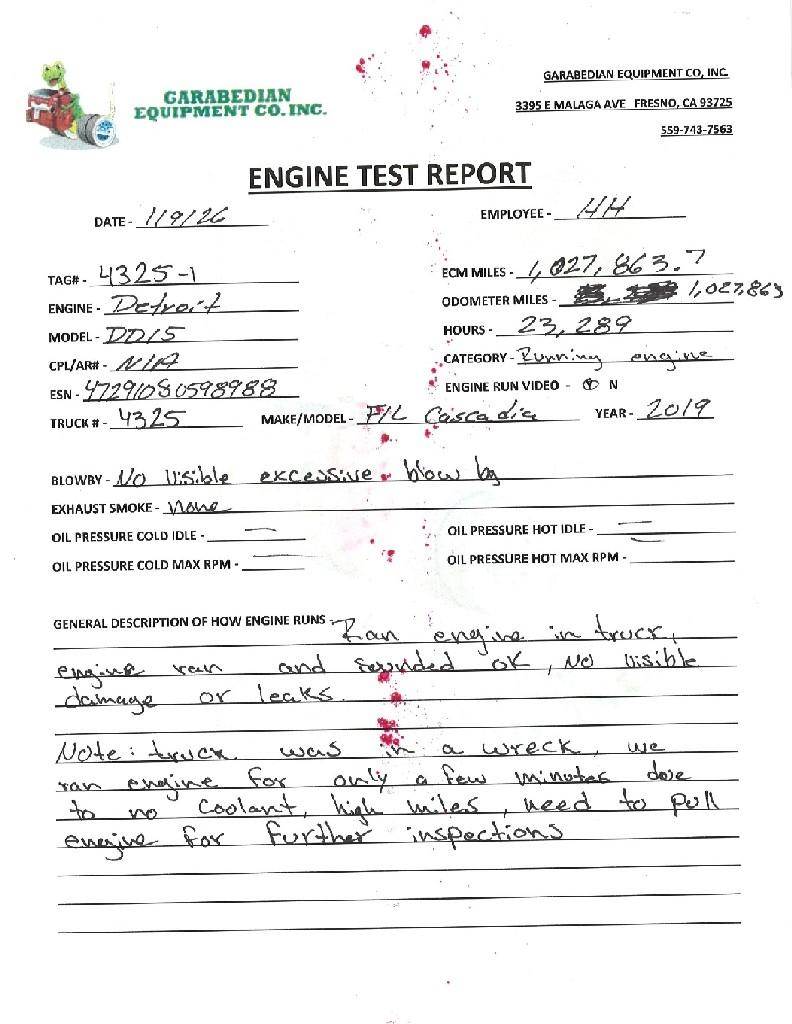 GARABEDIAN
EQUIPMENT CO. INC.
GARABEDIAN EQUIPMENT CO, INC.
3395 E MALAGA AVE FRESNO, CA 93725
559-743-7563
ENGINE TEST REPORT
DATE - 1/9/26
EMPLOYEE - HH
TAG# - 4325-1
ECM MILES - 1,027,863.7
ENGINE - Detroit
ODOMETER MILES - 1,027,863
MODEL - DD15
HOURS - 23,289
CPL/AR# - N/A
CATEGORY - Running engine
ESN - 47291080598988
ENGINE RUN VIDEO - Y N
TRUCK # - 4325 MAKE/MODEL - F/L Cascadia YEAR - 2019
BLOWBY - No visible excessive blow by
EXHAUST SMOKE - none
OIL PRESSURE COLD IDLE - —
OIL PRESSURE HOT IDLE - —
OIL PRESSURE COLD MAX RPM - —
OIL PRESSURE HOT MAX RPM - —
GENERAL DESCRIPTION OF HOW ENGINE RUNS -
Ran engine in truck,
engine ran and sounded ok, No visible
damage or leaks.
Note: truck was in a wreck, we
ran engine for only a few minutes doe
to no coolant, high miles, need to pull
engine for further inspections